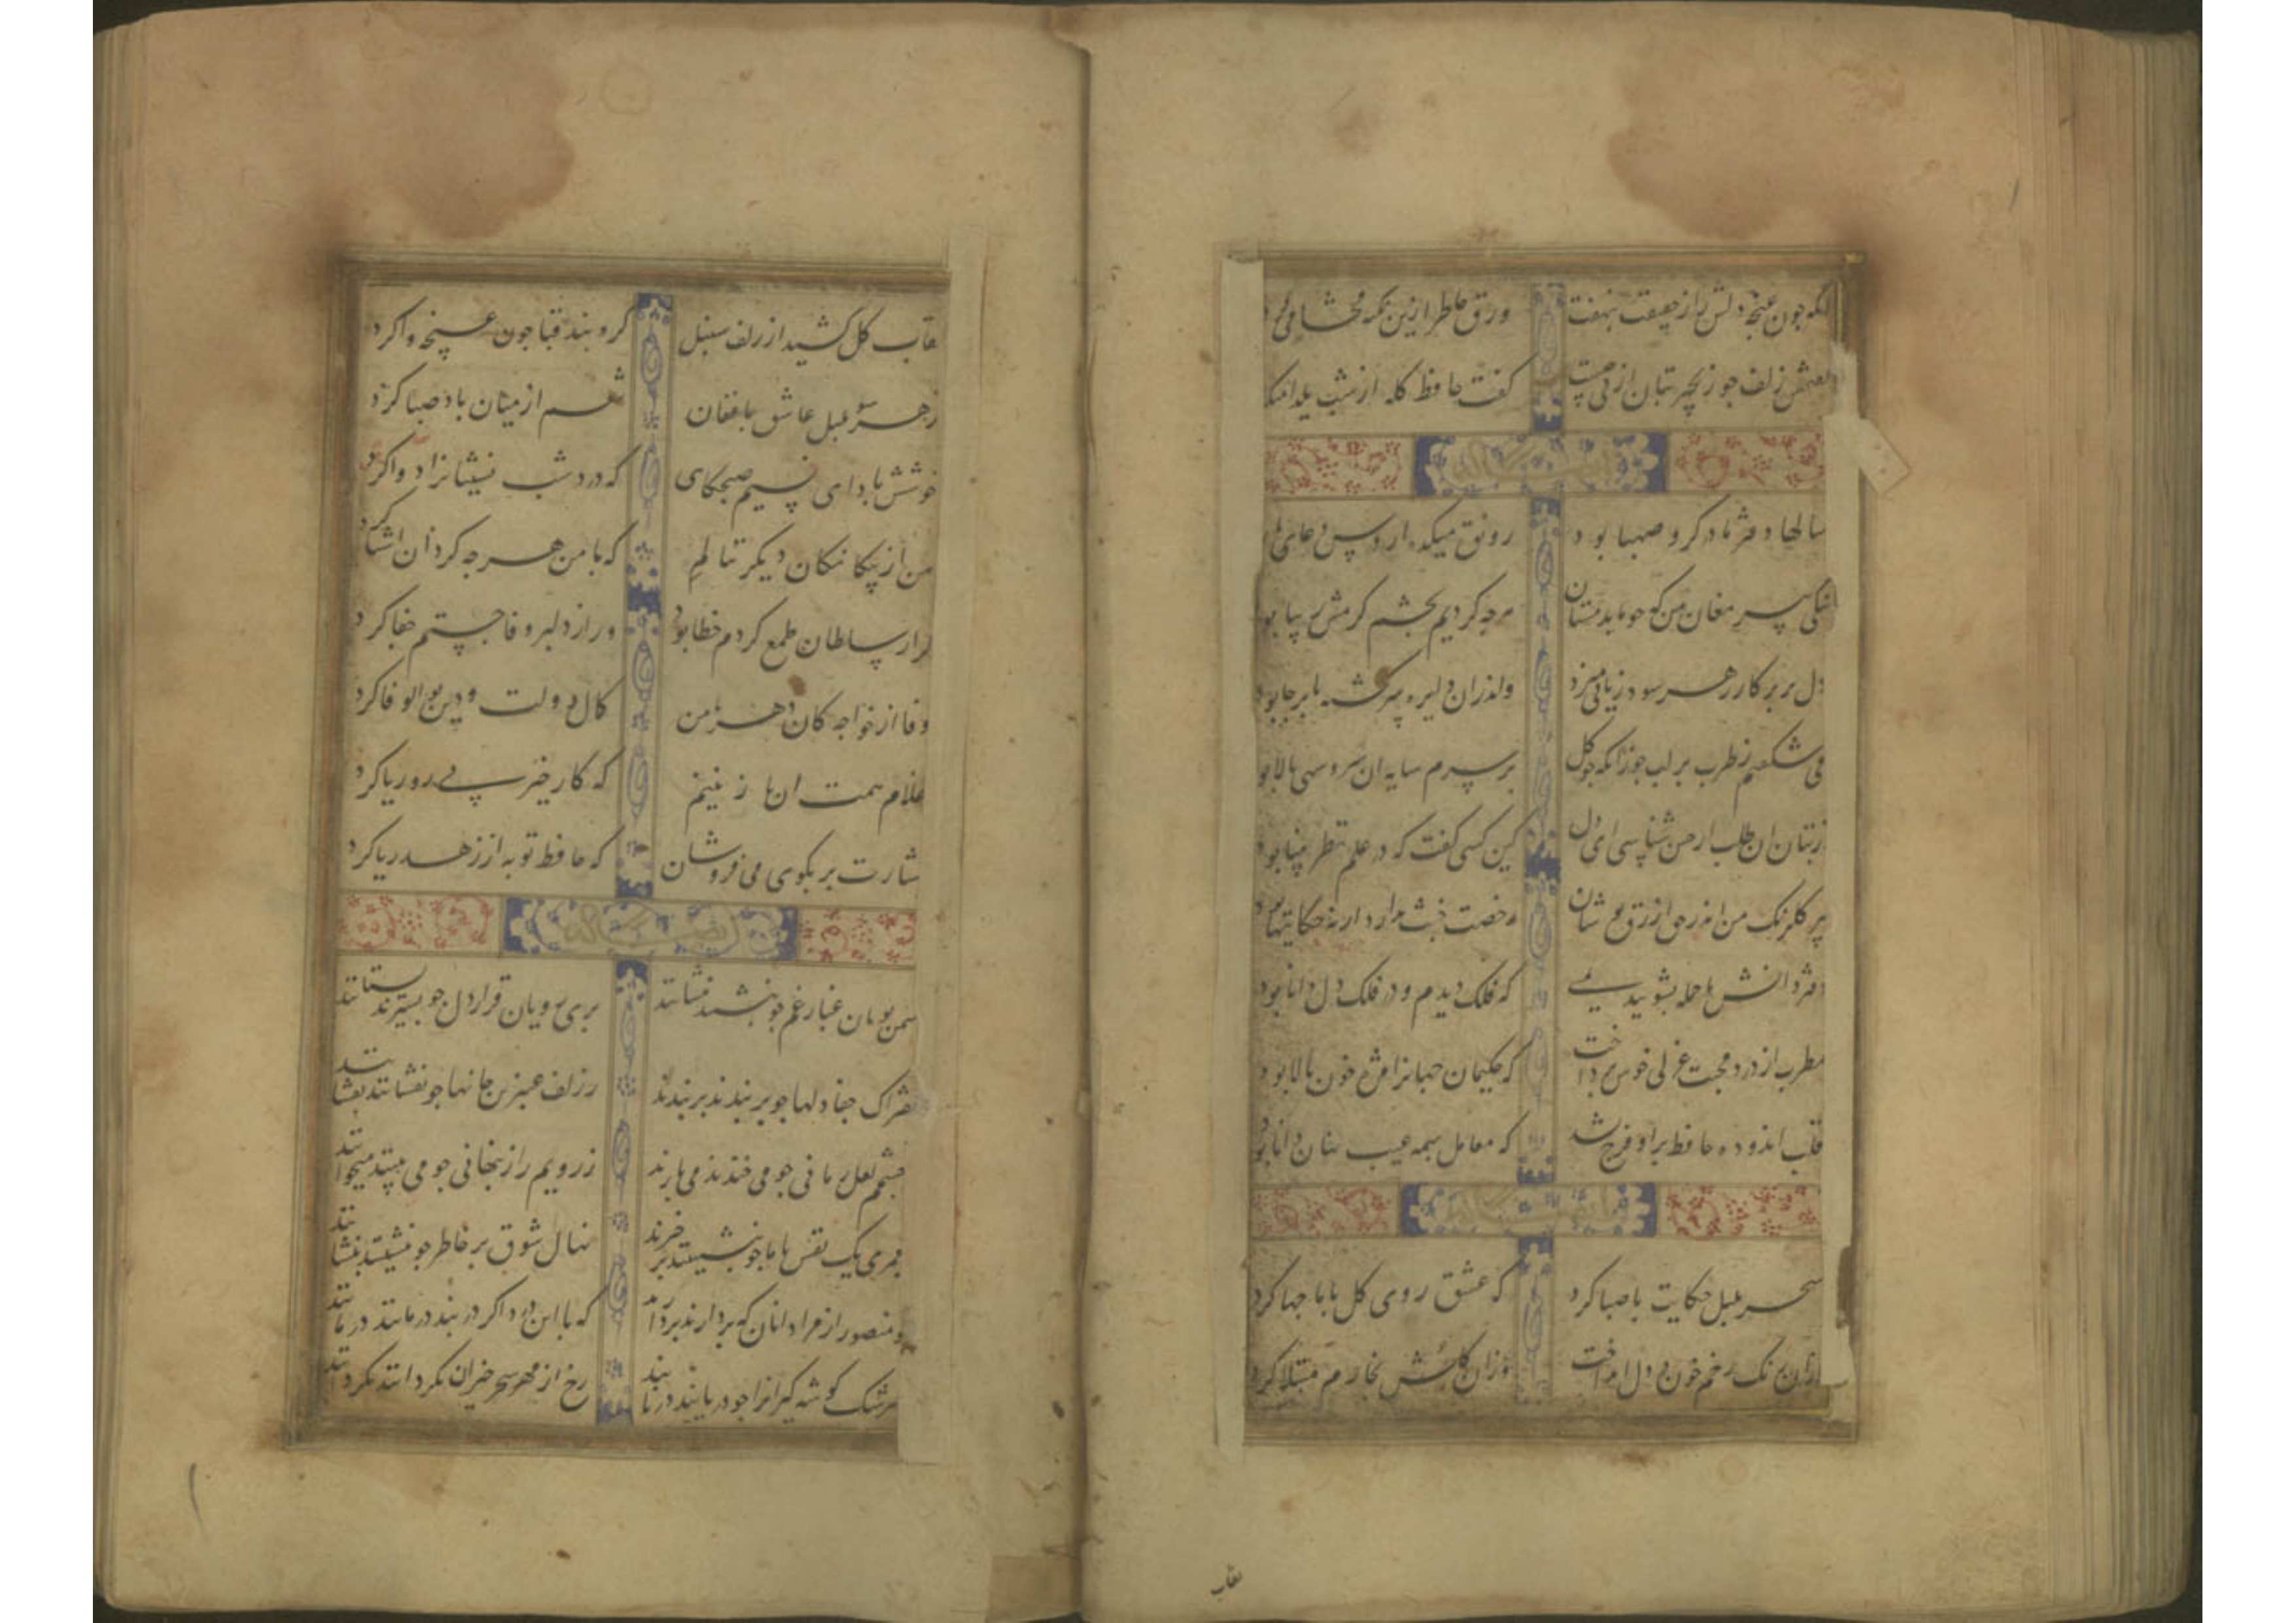 آنکه چون غنچه دلش راز حقیقت بنهفت ورق خاطر ازین نکته محشا می کرد
گفتمش زلف چو زنجیر بتان از پی چیست گفت حافظ کله از شب یلدا میکرد
سالها دفتر ما در کرو صهبا بود رونق میکده از درس و دعای ما بود
نیکی پیر مغان بین که چو ما بدمستان هر چه کردیم بچشم کرمش زیبا بود
دل چو پرکار بهر سو دورانی میزد واندران دایره سرکشته پا برجا بود
می شکفتم ز طرب زانکه چو کل بر لب جو بر سرم سایه ان سرو سهی بالا بود
از بتان ان طلب ار حسن شناسی ای دل کین کسی کفت که در علم نظر بینا بود
پیر کلرنک من اندر حق ازرق پوشان رخصت خبث نداد ار نه حکایتها بود
دفتر دانش ما جمله بشویید بمی که فلک دیدم و در فلک دل دانا بود
مطرب از درد محبت غزلی خوش می پرداخت که حکیمان جهانرا مژه خون پالا بود
قلب اندوده حافظ بر او خرج نشد که معامل بهمه عیب نهان دانا بود
سحر بلبل حکایت با صبا کرد که عشق روی کل با ما جها کرد
ازان رنک رخم خون در دل انداخت وزان کلشن بخارم مبتلا کرد
نقاب
نقاب کل کشید از زلف سنبل کره بند قبا چون غنچه وا کرد
بهر سو بلبل عاشق بافغان تنعم از میان باد صبا کرد
خوشش باد ای نسیم صبحکاهی که درد شب نشینانرا دوا کرد
من از بیکانکان دیکر ننالم که با من هر چه کرد ان اشنا کرد
کر از سلطان طمع کردم خطا بود ور از دلبر وفا جستم جفا کرد
وفا از خواجه کان دهر با من کمال دولت و دین بوالوفا کرد
غلام همت ان نازنینم که کار خیر بی روی و ریا کرد
بشارت بر بکوی می فروشان که حافظ توبه از زهد ریا کرد
سمن بویان غبار غم چو بنشینند بنشانند پری رویان قرار دل چو بستیزند بستانند
بفتراک جفا دلها چو بربندند بربندند ز زلف عنبرین جانها چو بفشانند بفشانند
ز چشمم لعل رمانی چو می خندند می بارند ز رویم راز پنهانی چو می بینند میخوانند
بعمری یک نفس با ما چو بنشینند برخیزند نهال شوق بر خاطر چو بنشینند بنشانند
چو منصور از مراد انان که بردارند بر دارند که با این درد اکر در بند درمانند درمانند
سرشک کوشه کیرانرا چو دریابند دریابند رخ از مهر سحر خیزان نکردانند نکردانند